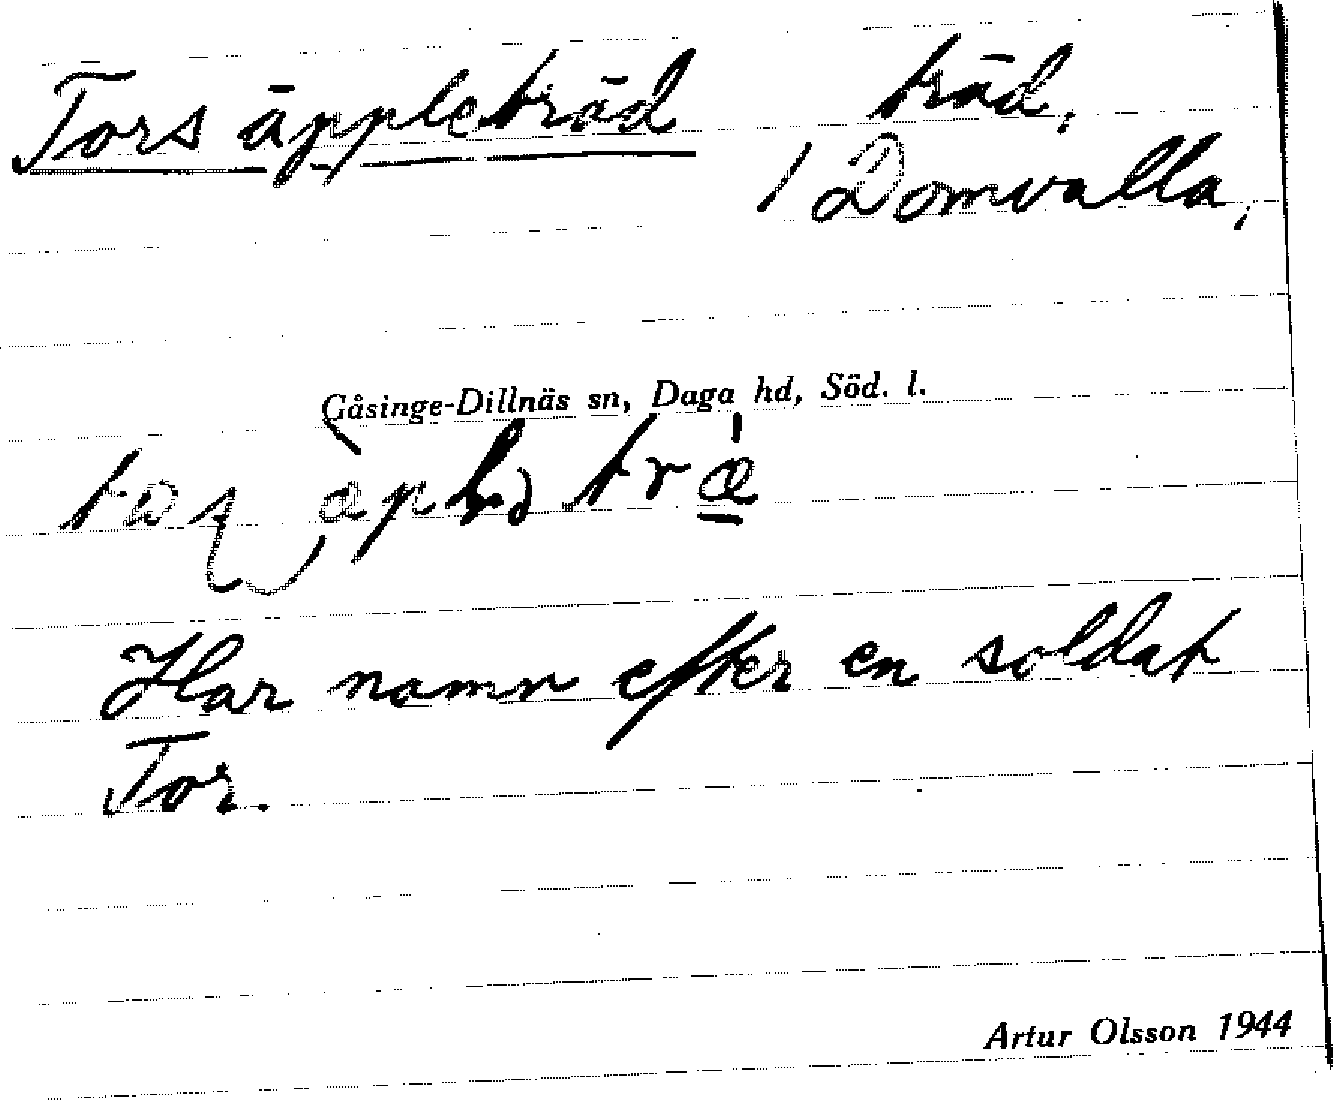 Tors äppleträd träd,
1 Domvalla,
Gåsinge-Dillnäs sn, Daga hd, Söd. l.
Har namn efter en soldat
Tor.
Artur Olsson 1944